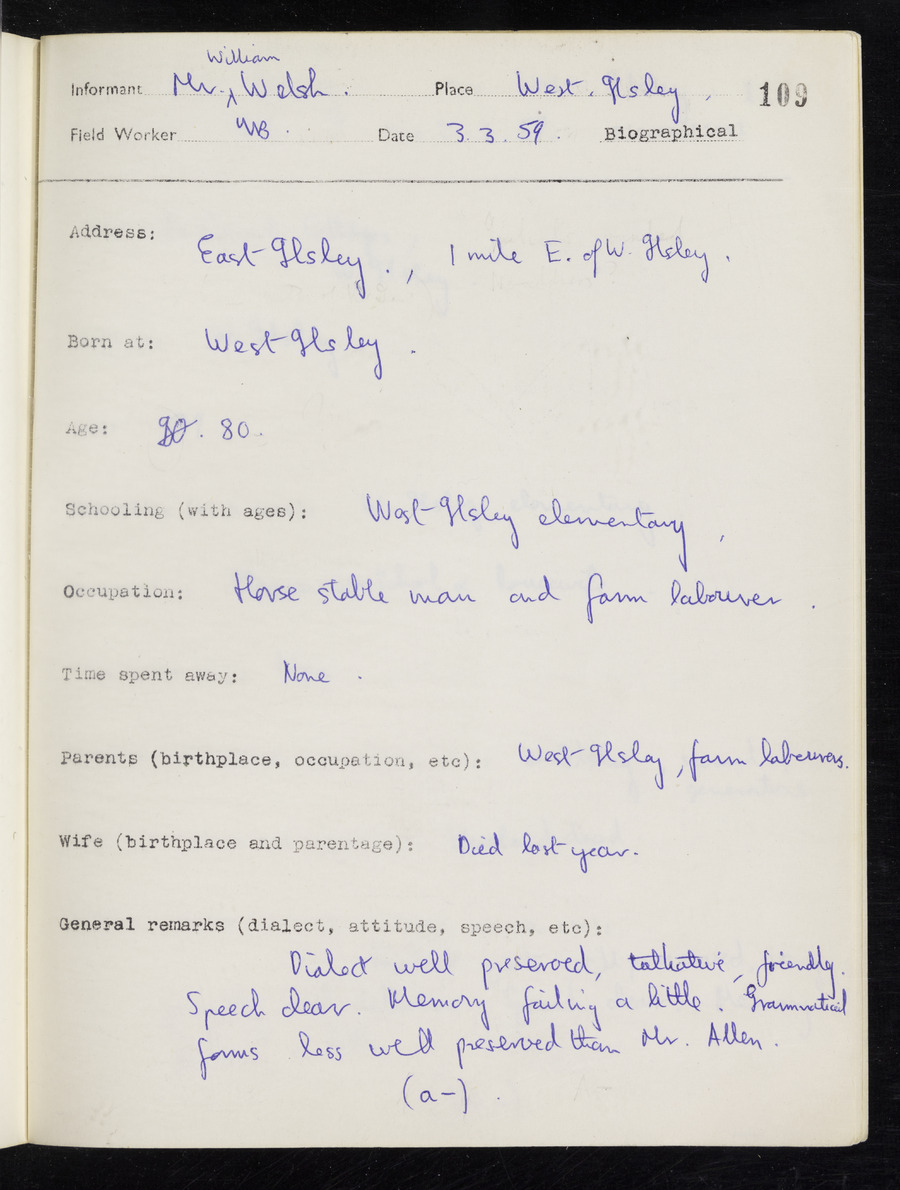 William
Informant Mr. Welsh. Place West. Ilsley, 109
Field Worker Date 3.3.59. Biographical
Address: East Ilsley., 1 mile E. of W. Ilsley.
Born at: West Ilsley.
Age: 80.
Schooling (with ages): West Ilsley elementary,
Occupation: Horse stable man and farm labourer.
Time spent away: None.
Parents (birthplace, occupation, etc): West Ilsley, farm labourers.
Wife (birthplace and parentage): Died last year.
General remarks (dialect, attitude, speech, etc):
Dialect well preserved, talkative, friendly.
Speech clear. Memory failing a little. Grammatical
forms less well preserved than Mr. Allen.
(a-)